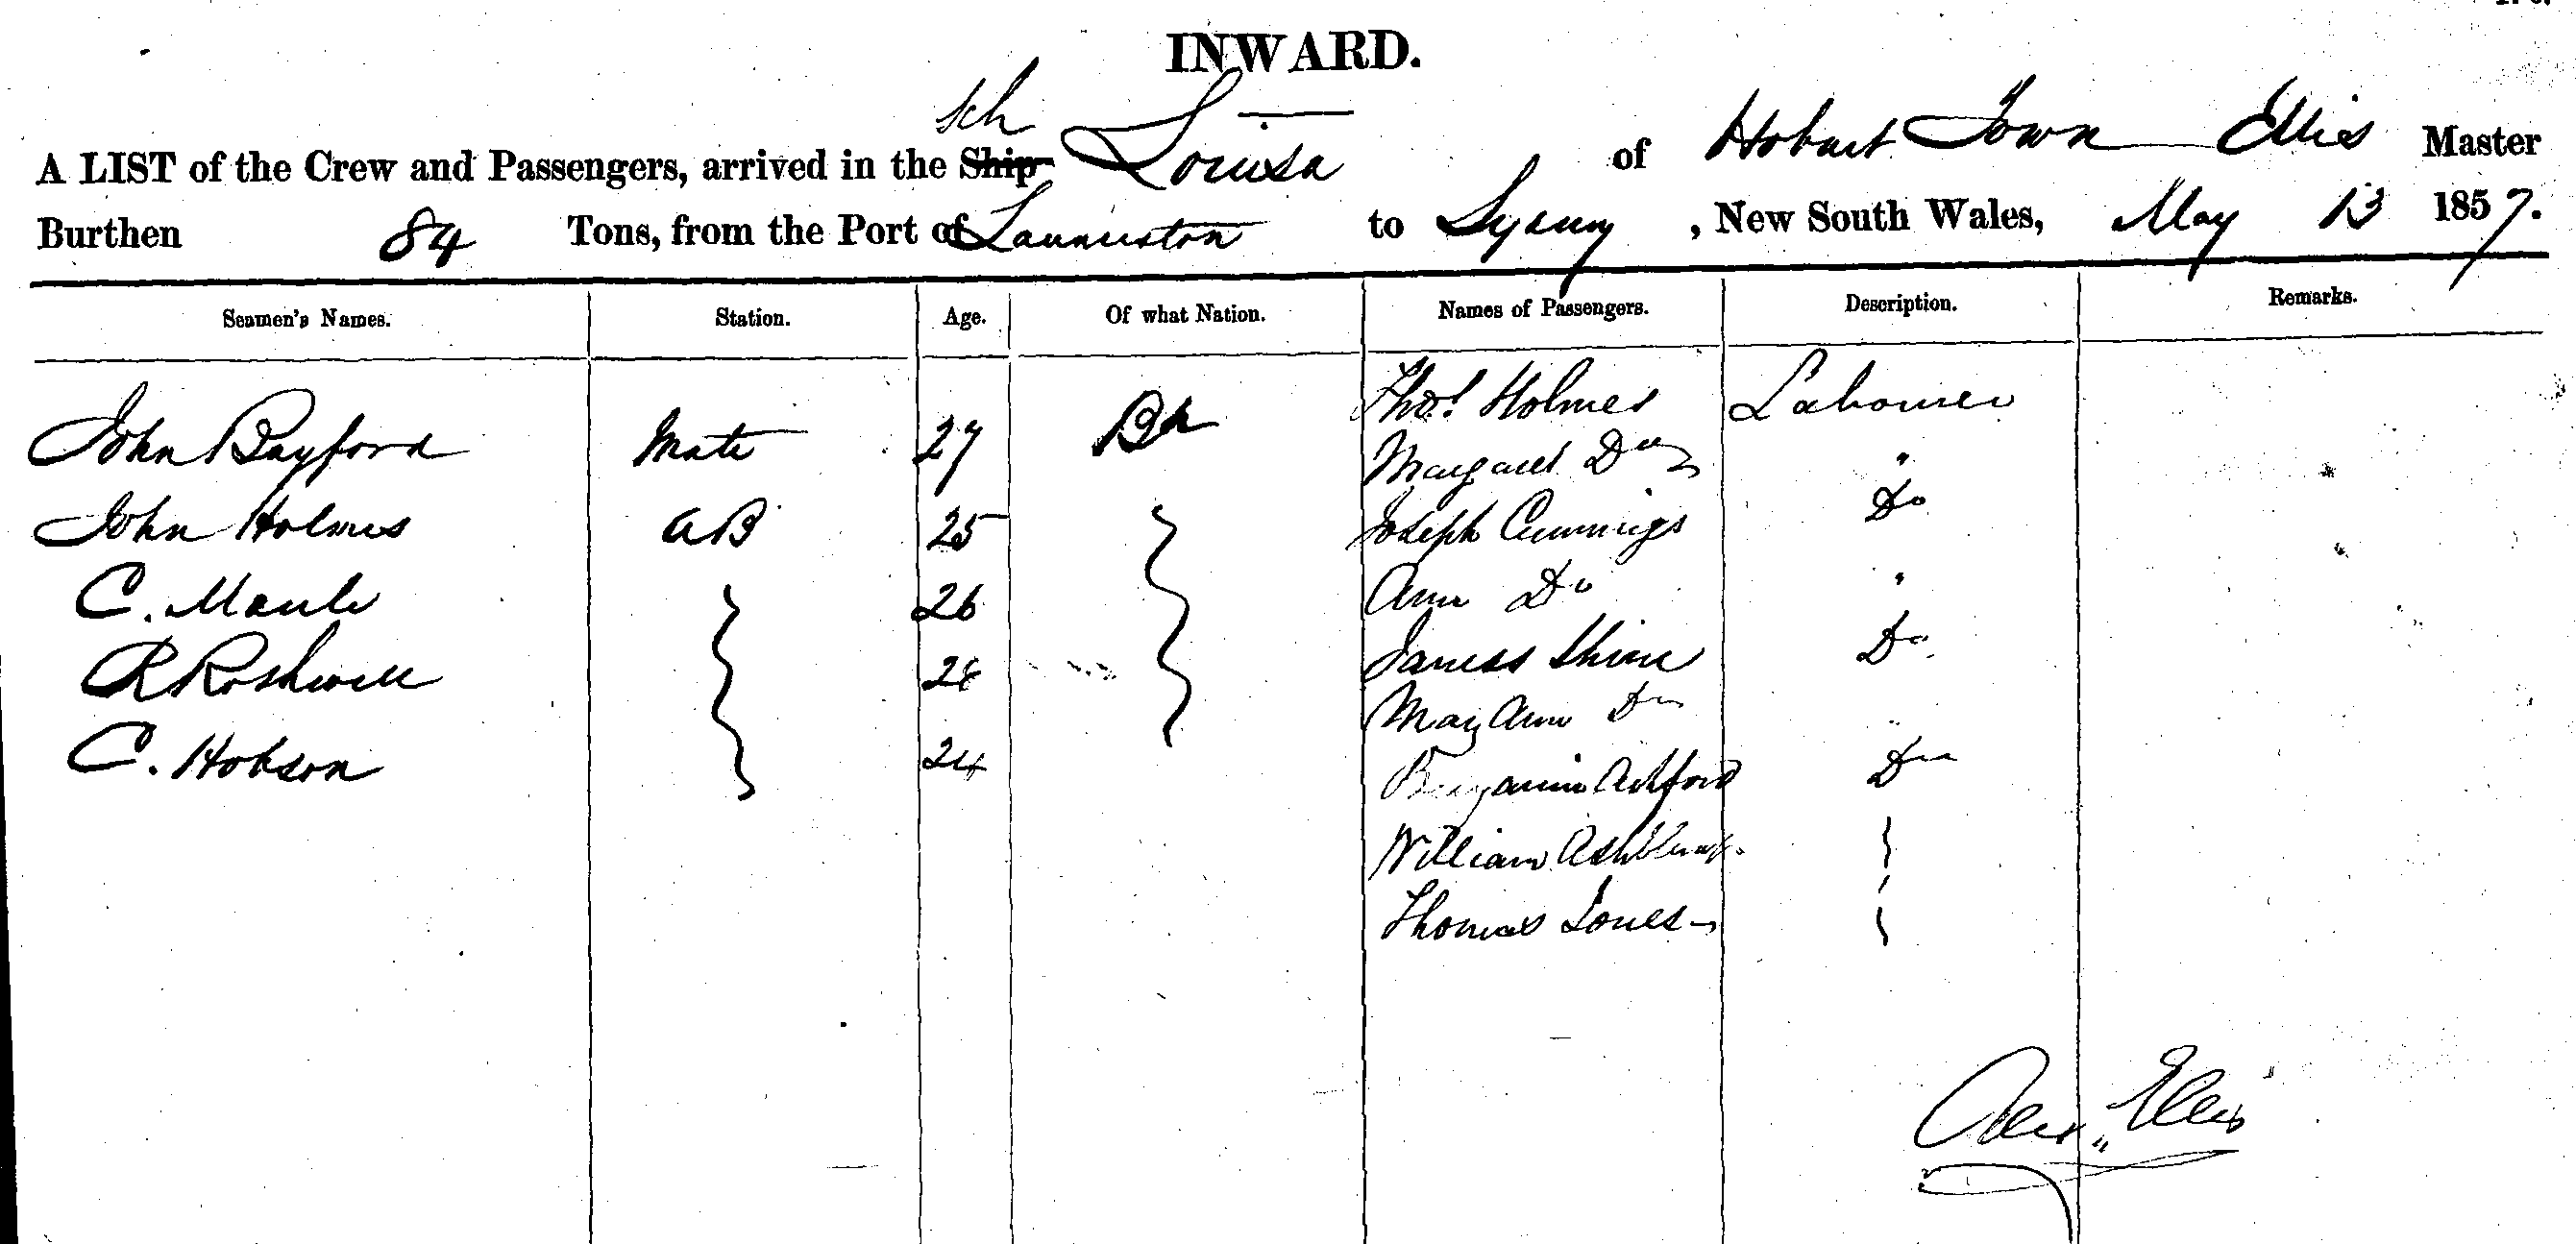 INWARD.
A LIST of the Crew and Passengers, arrived in the Ship Sch Louisa of Hobart Town Ellis Master
Burthen 84 Tons, from the Port of Launceston to Sydney, New South Wales, May 13 1857.
Seamen's Names. Station. Age. Of what Nation. Names of Passengers. Description. Remarks.
Thos. Holmes Labourer
John Bayford Mate 27 Br
Margaret Do "
John Holmes AB 25 Joseph Cummings Do
C. Maule 26 Ann Do "
R 28 James Shine Do
Mary Ann Do "
C. Hobson 24 Benjamin Ashford Do
William
Thomas Jones
Alexr Ellis